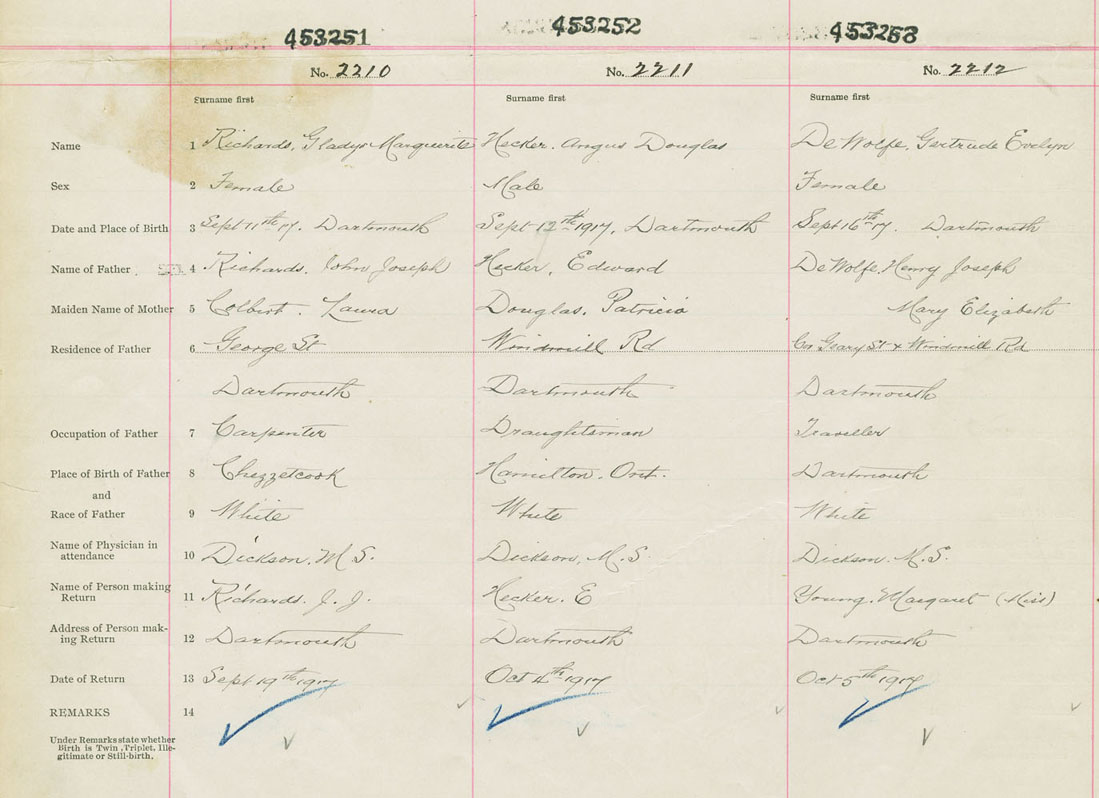 453251 453252 453253
No. 2210 No. 2211 No. 2212
Surname first Surname first Surname first
Name 1 Richards, Gladys Marguerite Hecker. Angus Douglas DeWolfe, Gertrude Evelyn
Sex 2 Female Male Female
Date and Place of Birth 3 Sept 11th 17. Dartmouth Sept 12th 1917, Dartmouth Sept 16th 17. Dartmouth
Name of Father 4 Richards, John Joseph Hecker, Edward DeWolfe, Henry Joseph
Maiden Name of Mother 5 Colbert. Laura Douglas, Patricia Mary Elizabeth
Residence of Father 6 George St Windmill Rd Cor Geary St & Windmill Rd
Dartmouth Dartmouth Dartmouth
Occupation of Father 7 Carpenter Draughtsman Traveller
Place of Birth of Father 8 Chezzetcook Hamilton. Ont. Dartmouth
and
Race of Father 9 White White White
Name of Physician in
attendance 10 Dickson, M. S. Dickson, M. S. Dickson. M. S.
Name of Person making
Return 11 Richards. J. J. Hecker. E Young. Margaret (Miss)
Address of Person mak-
ing Return 12 Dartmouth Dartmouth Dartmouth
Date of Return 13 Sept 19th 1917 Oct 4th 1917 Oct 5th 1917
REMARKS 14
Under Remarks state whether
Birth is Twin, Triplet, Ille-
gitimate or Still-birth.